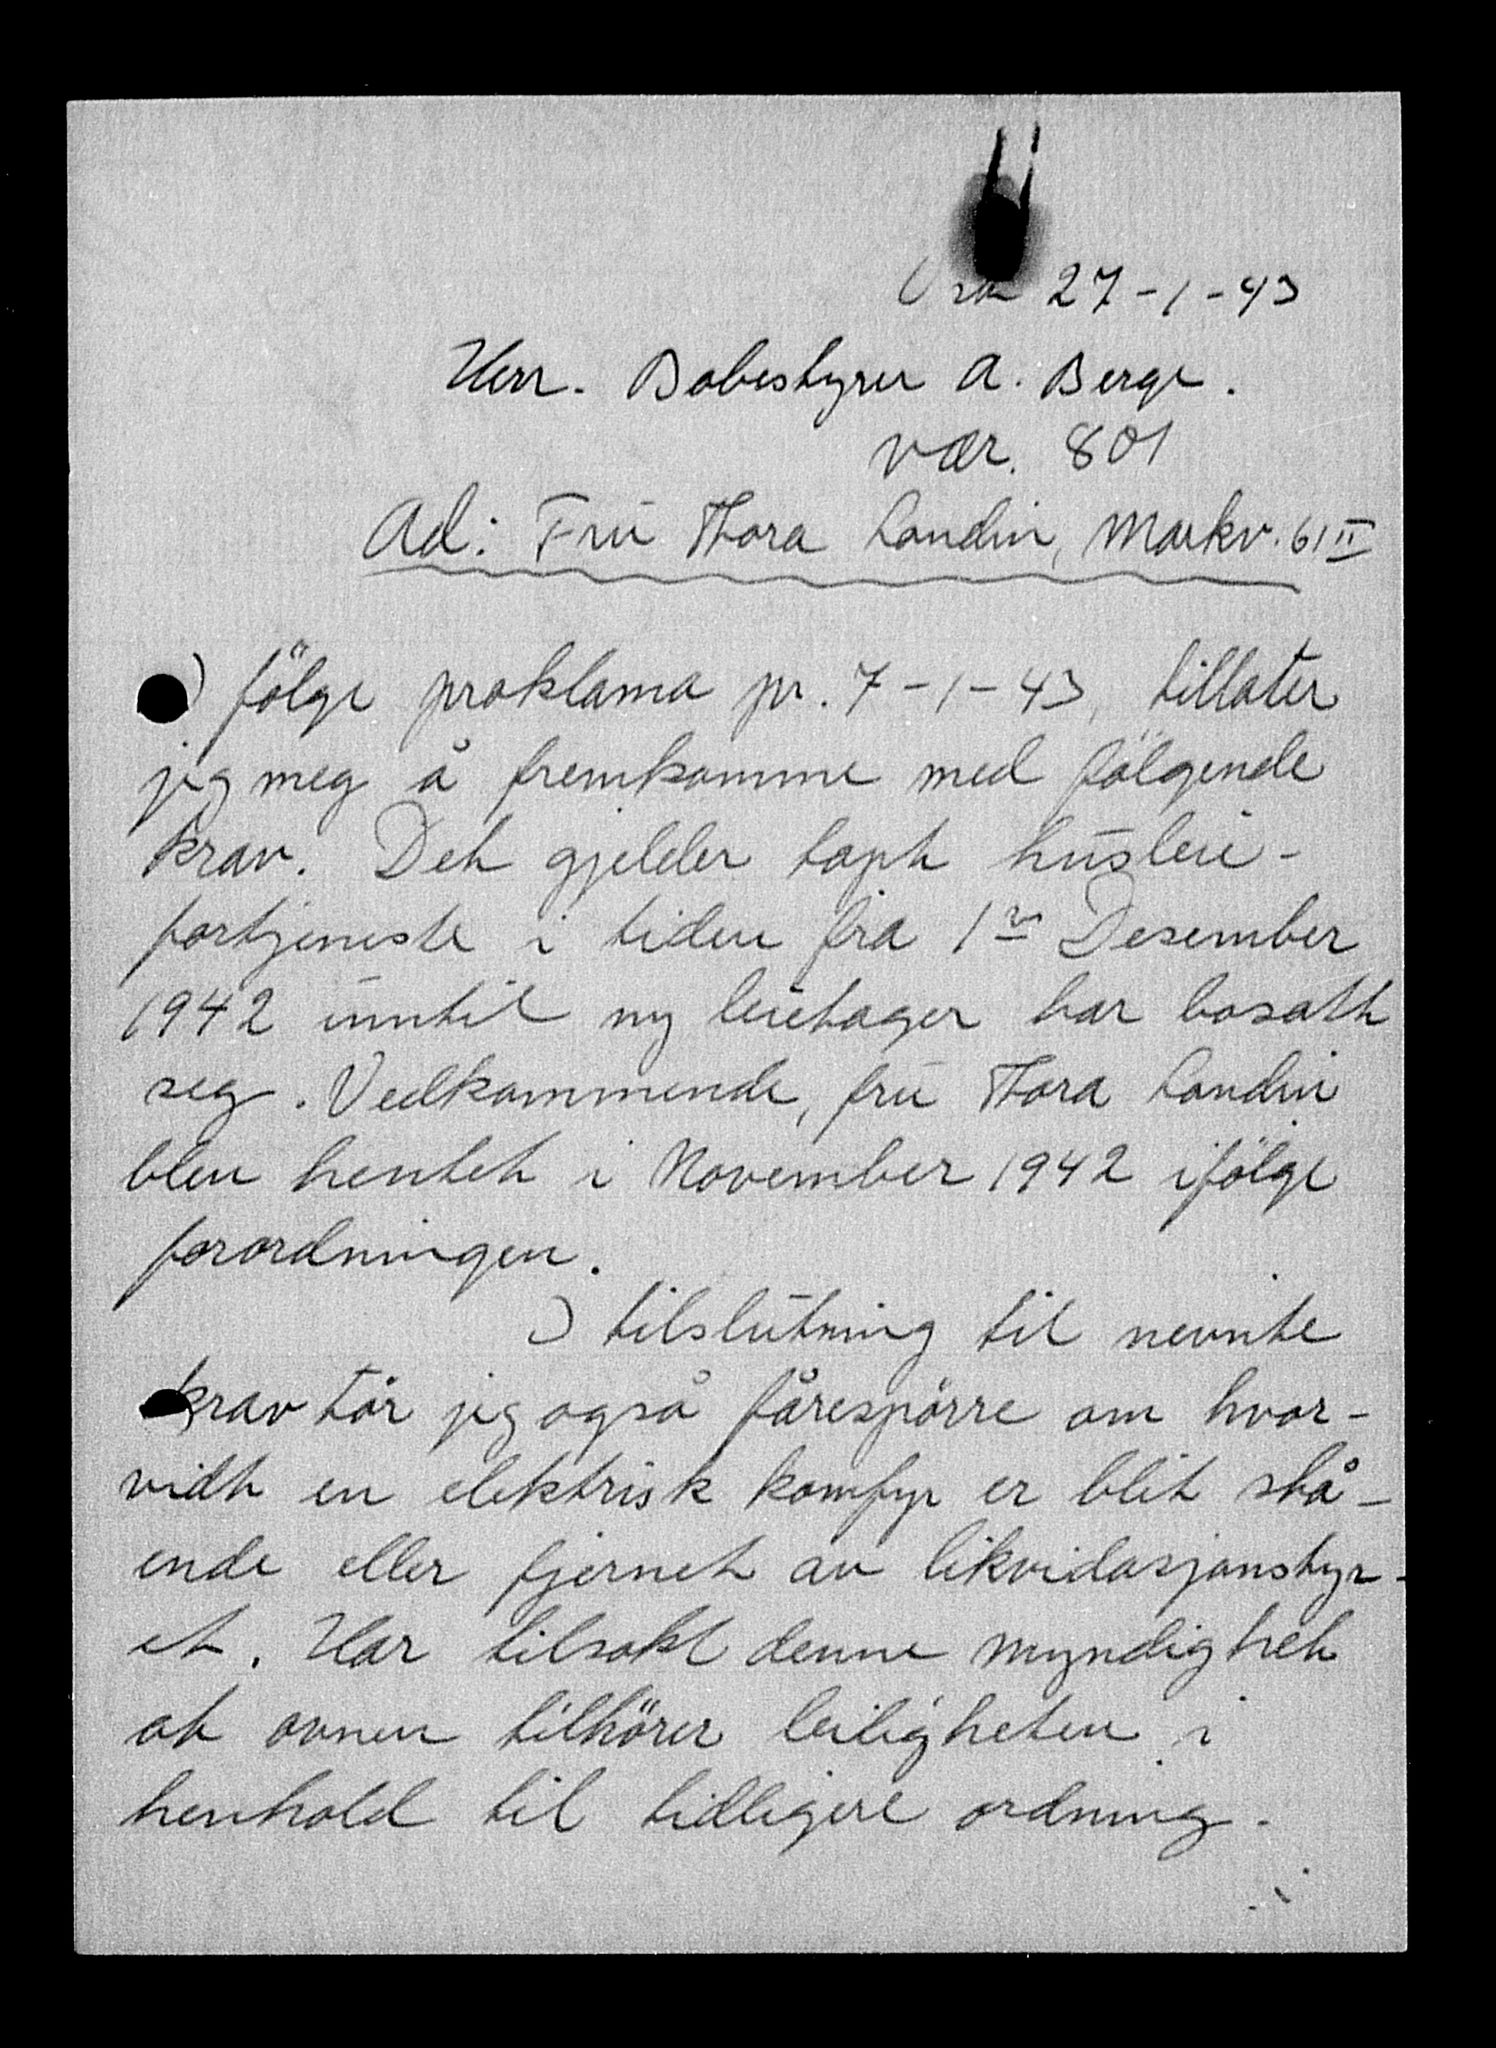 27-1-43
Herr. Bobestyrer A. Berge.
vær. 801
Ad: Frū Thora Londin, Markv. 61 II
I følge proklama pr. 7-1-43, tillater
jeg meg å fremkomme med følgende
krav. Det gjelder tapt hūsleie-
fortjeneste i tiden fra 1ste Desember
1942 inntil ny leietager har bosatt
seg. Vedkommende, frū Thora Londin
blev hentet i November 1942 ifølge
forordningen.
I tilslūtning til nevnte
krav tör jeg også fårespörre om hvor-
vidt en elektrisk komfyr er blit stå-
ende eller fjernet av likvidasjonstyr-
et. Har tilsakt denne myndighet
at ovnen tilhörer leiligheten i
henhold til tidligere ordning.